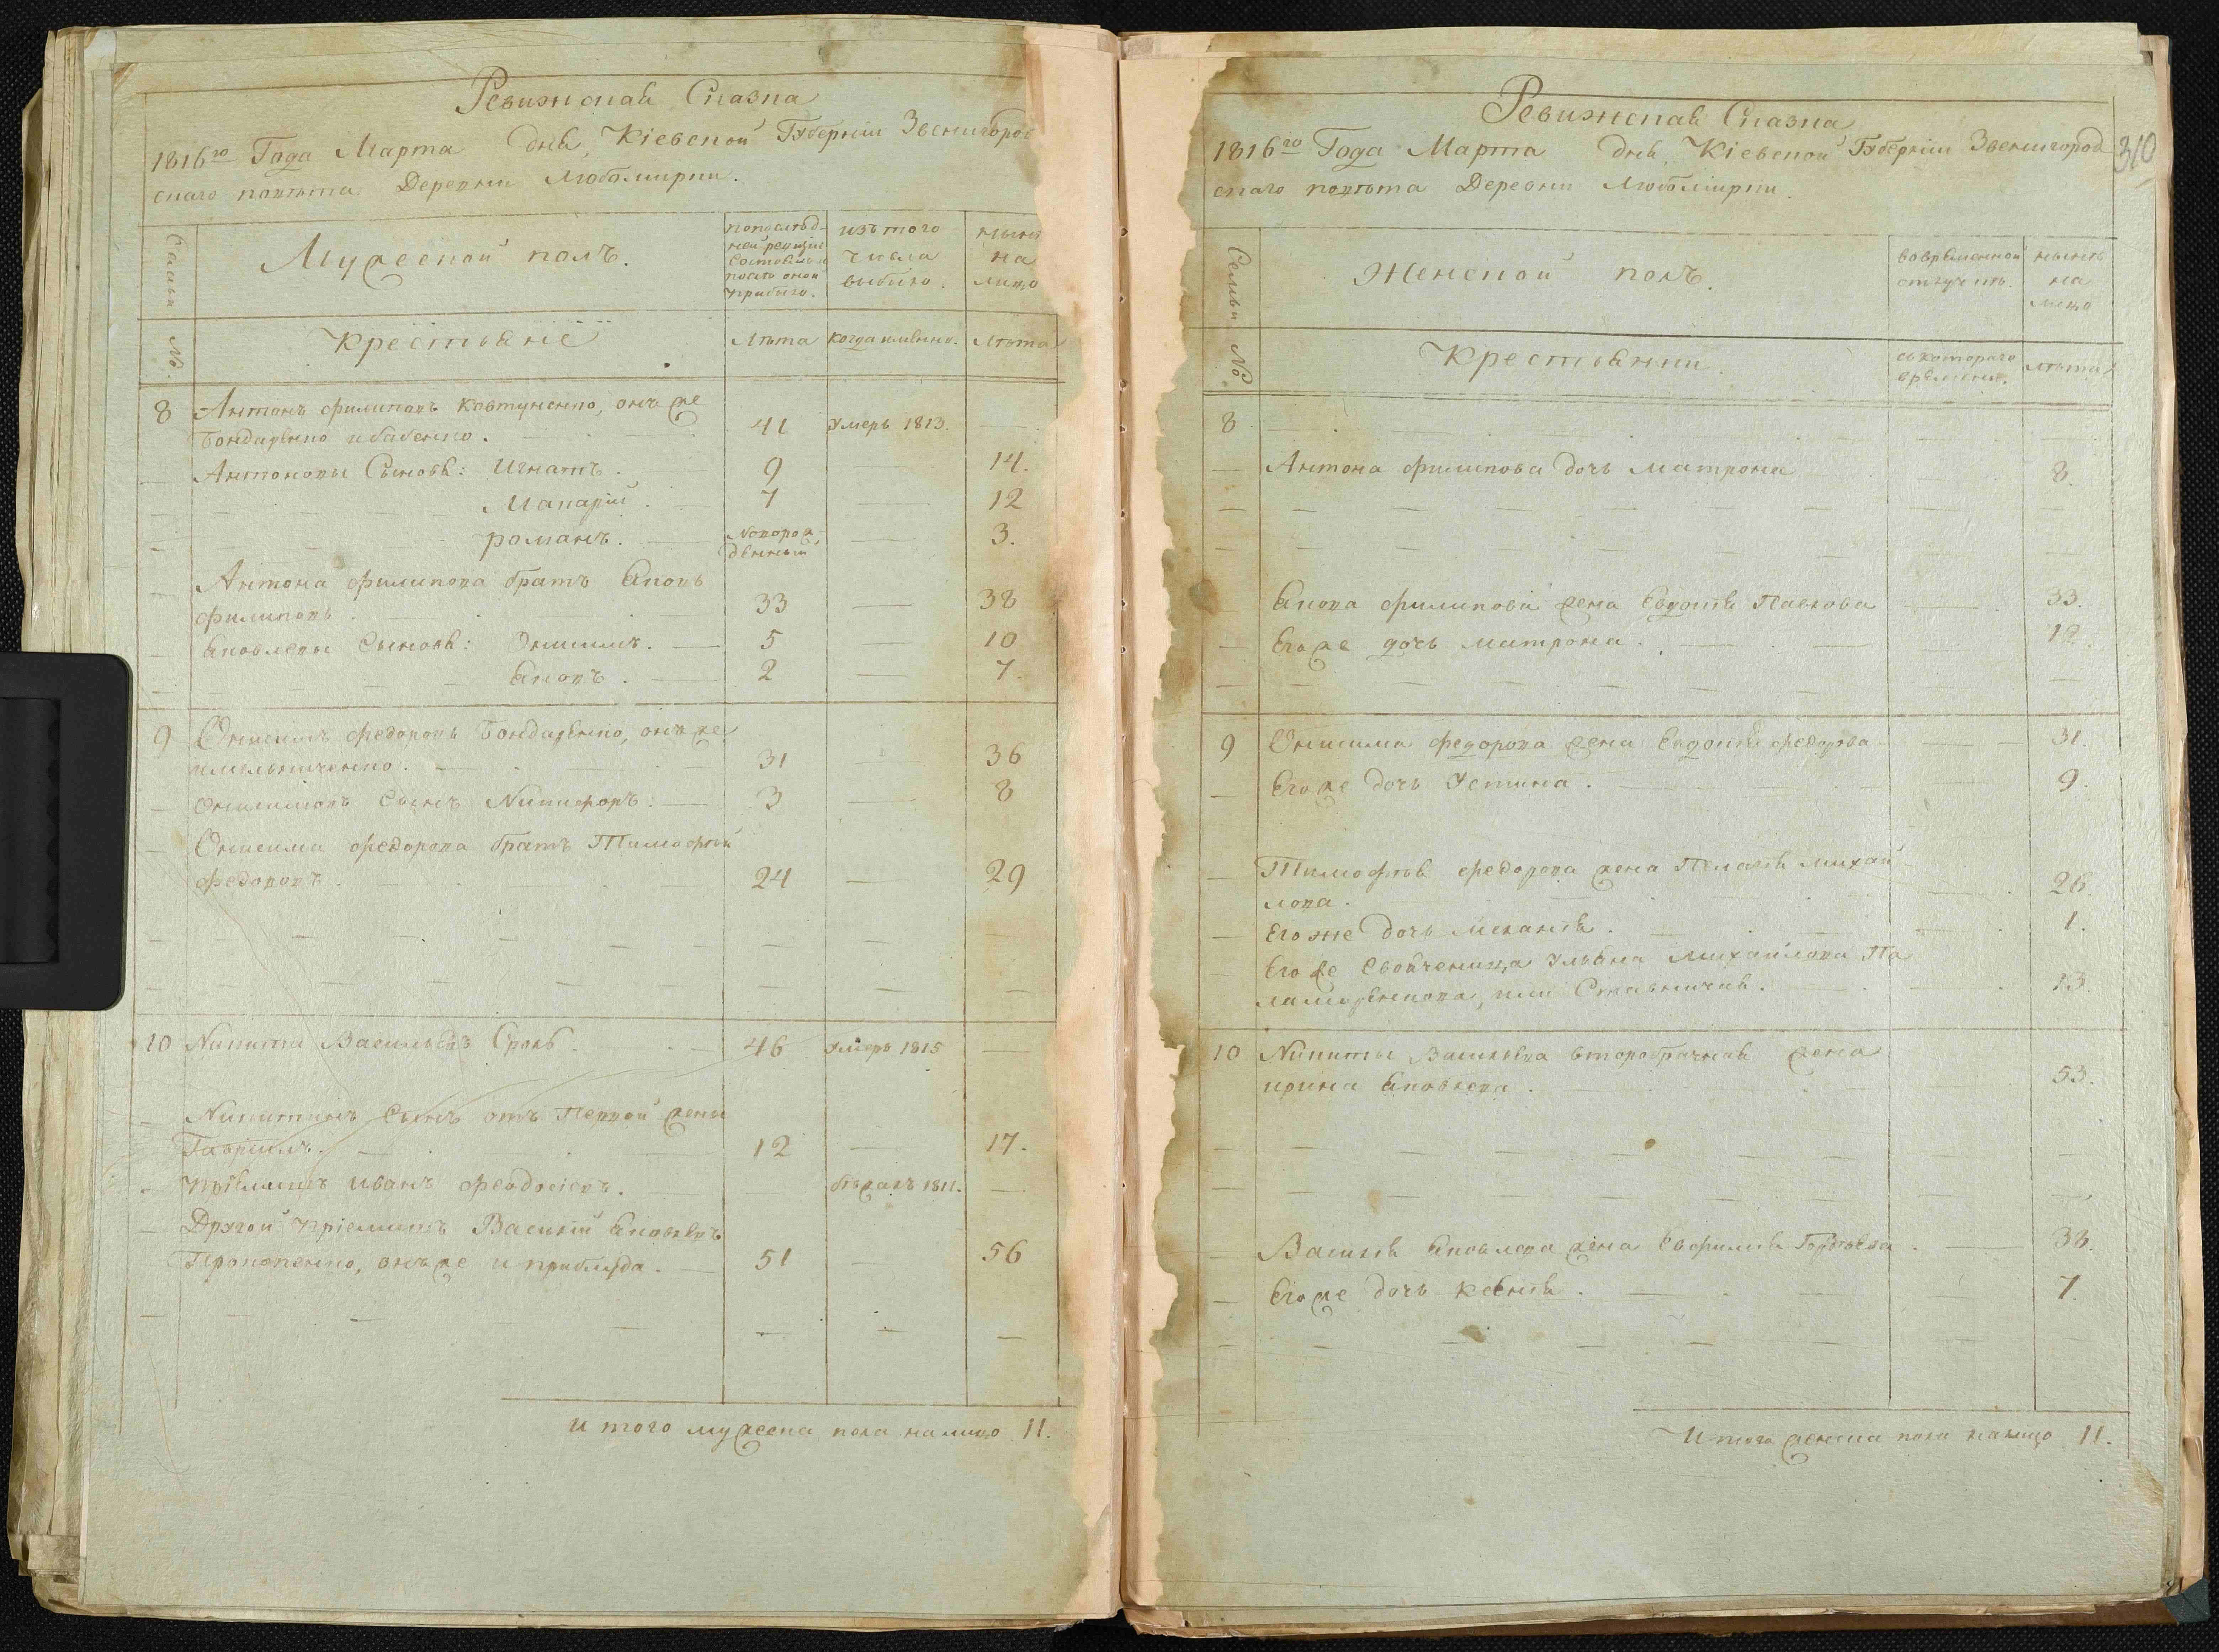 Ревизская Сказка
1816го Года Марта дня, Кіевской Губерніи Звенигород
скаго повѣта Деревни Любомирки.
Семьи
Мужеской полъ.
пополѣд-
ней ревизіи
состояло и
послѣ оной
прибыло.
изъ того
числа
выбыло.
нынѣ
на
лицо
№.
Крестьяне
Лѣта
когда имянно.
Лѣта
8
Антонъ филиповъ Ковтуненко, онъ же
Бондаренко и бабенко.
41
умеръ 1813.
Антоновы Сыновья: Игнатъ.
9
14.
Макарій.
7
12
романъ.
Новорож,
денный
3.
Антона филипова братъ Яковъ
филиповъ.
33
38
Яковлевы Сыновья: Онисимъ.
5
10
Яковъ.
2
7.
9
Онисимъ федоровъ Бондаренко, онъ же
и мельниченко.
31
36
Онисимовъ Сынъ Никифоръ.
3
8
Онисима федорова братъ Тимофѣй
федоровъ.
24
29
10
Никита Васильевъ
46
умеръ 1815
Никитинъ Сынъ отъ Первой жены
Гавріилъ.
12
17.
пріемишъ Иванъ феодосіевъ.
бѣжалъ 1811.
Другой пріемишъ Василій Яковлевъ
Прокопенко, онъ же и приблуда.
51
56
Итого мужеска пола налицо 11.
Ревизская Сказка
310
1816го Года Марта дня, Кіевской Губерніи Звенигород
скаго повѣта Деревни Любомирки.
Семьи
Женской полъ.
во временной
отлучкѣ.
нынѣ
на
лицо
№
Крестьянки
съ котораго
времени.
лѣта
8
Антона филипова дочь Матрона
8.
Якова филипова жена Евдокія Павлова
33.
Его же дочь Матрона.
12.
9
Онисима федорова жена Евдокія федорова
31.
Его же дочь Устина.
9.
Тимофѣя федорова жена Пелагія Михай
лова.
26.
Его же дочь Меланія.
1.
Его же Свояченица Ульяна Михайлова Па
ламаренкова, или
13.
10
Никиты Васильева второбрачная жена
ирина Яковлева.
53.
Василія Яковлева жена Евфимія
38.
Его же дочь Ксенія.
7.
Итого женска пола налицо 11.